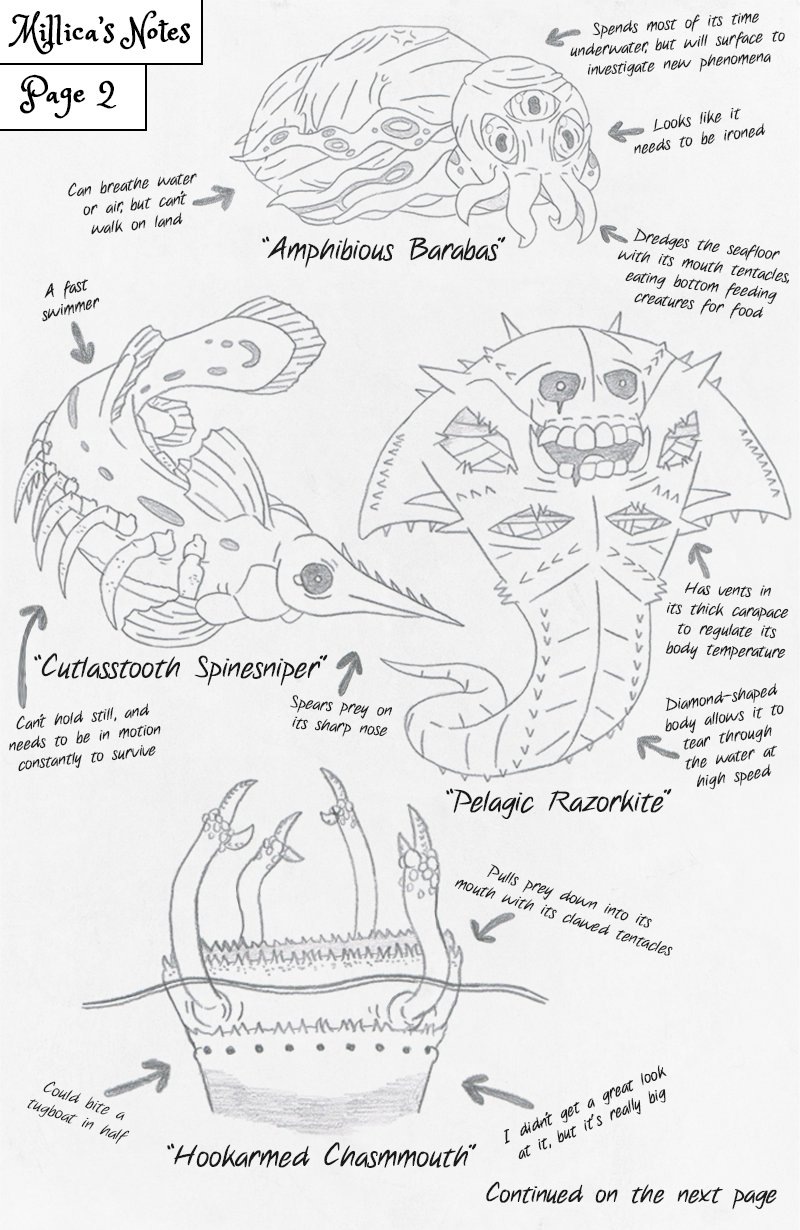 Millica's Notes
Page 2
Spends most of its time
underwater, but will surface to
investigate new phenomena
Looks like it
needs to be ironed
Can breathe water
or air, but can't
walk on land
"Amphibious Barabas"
Dredges the seafloor
with its mouth tentacles,
eating bottom feeding
creatures for food
A fast
swimmer
Has vents in
its thick carapace
to regulate its
body temperature
"Cutlasstooth Spinesniper"
Can't hold still, and
needs to be in motion
constantly to survive
Spears prey on
its sharp nose
Diamond-shaped
body allows it to
tear through
the water at
high speed
"Pelagic Razorkite"
Pulls prey down into its
mouth with its clawed tentacles
Could bite a
tugboat in half
I didn't get a great look
at it, but it's really big
"Hookarmed Chasmmouth"
Continued on the next page